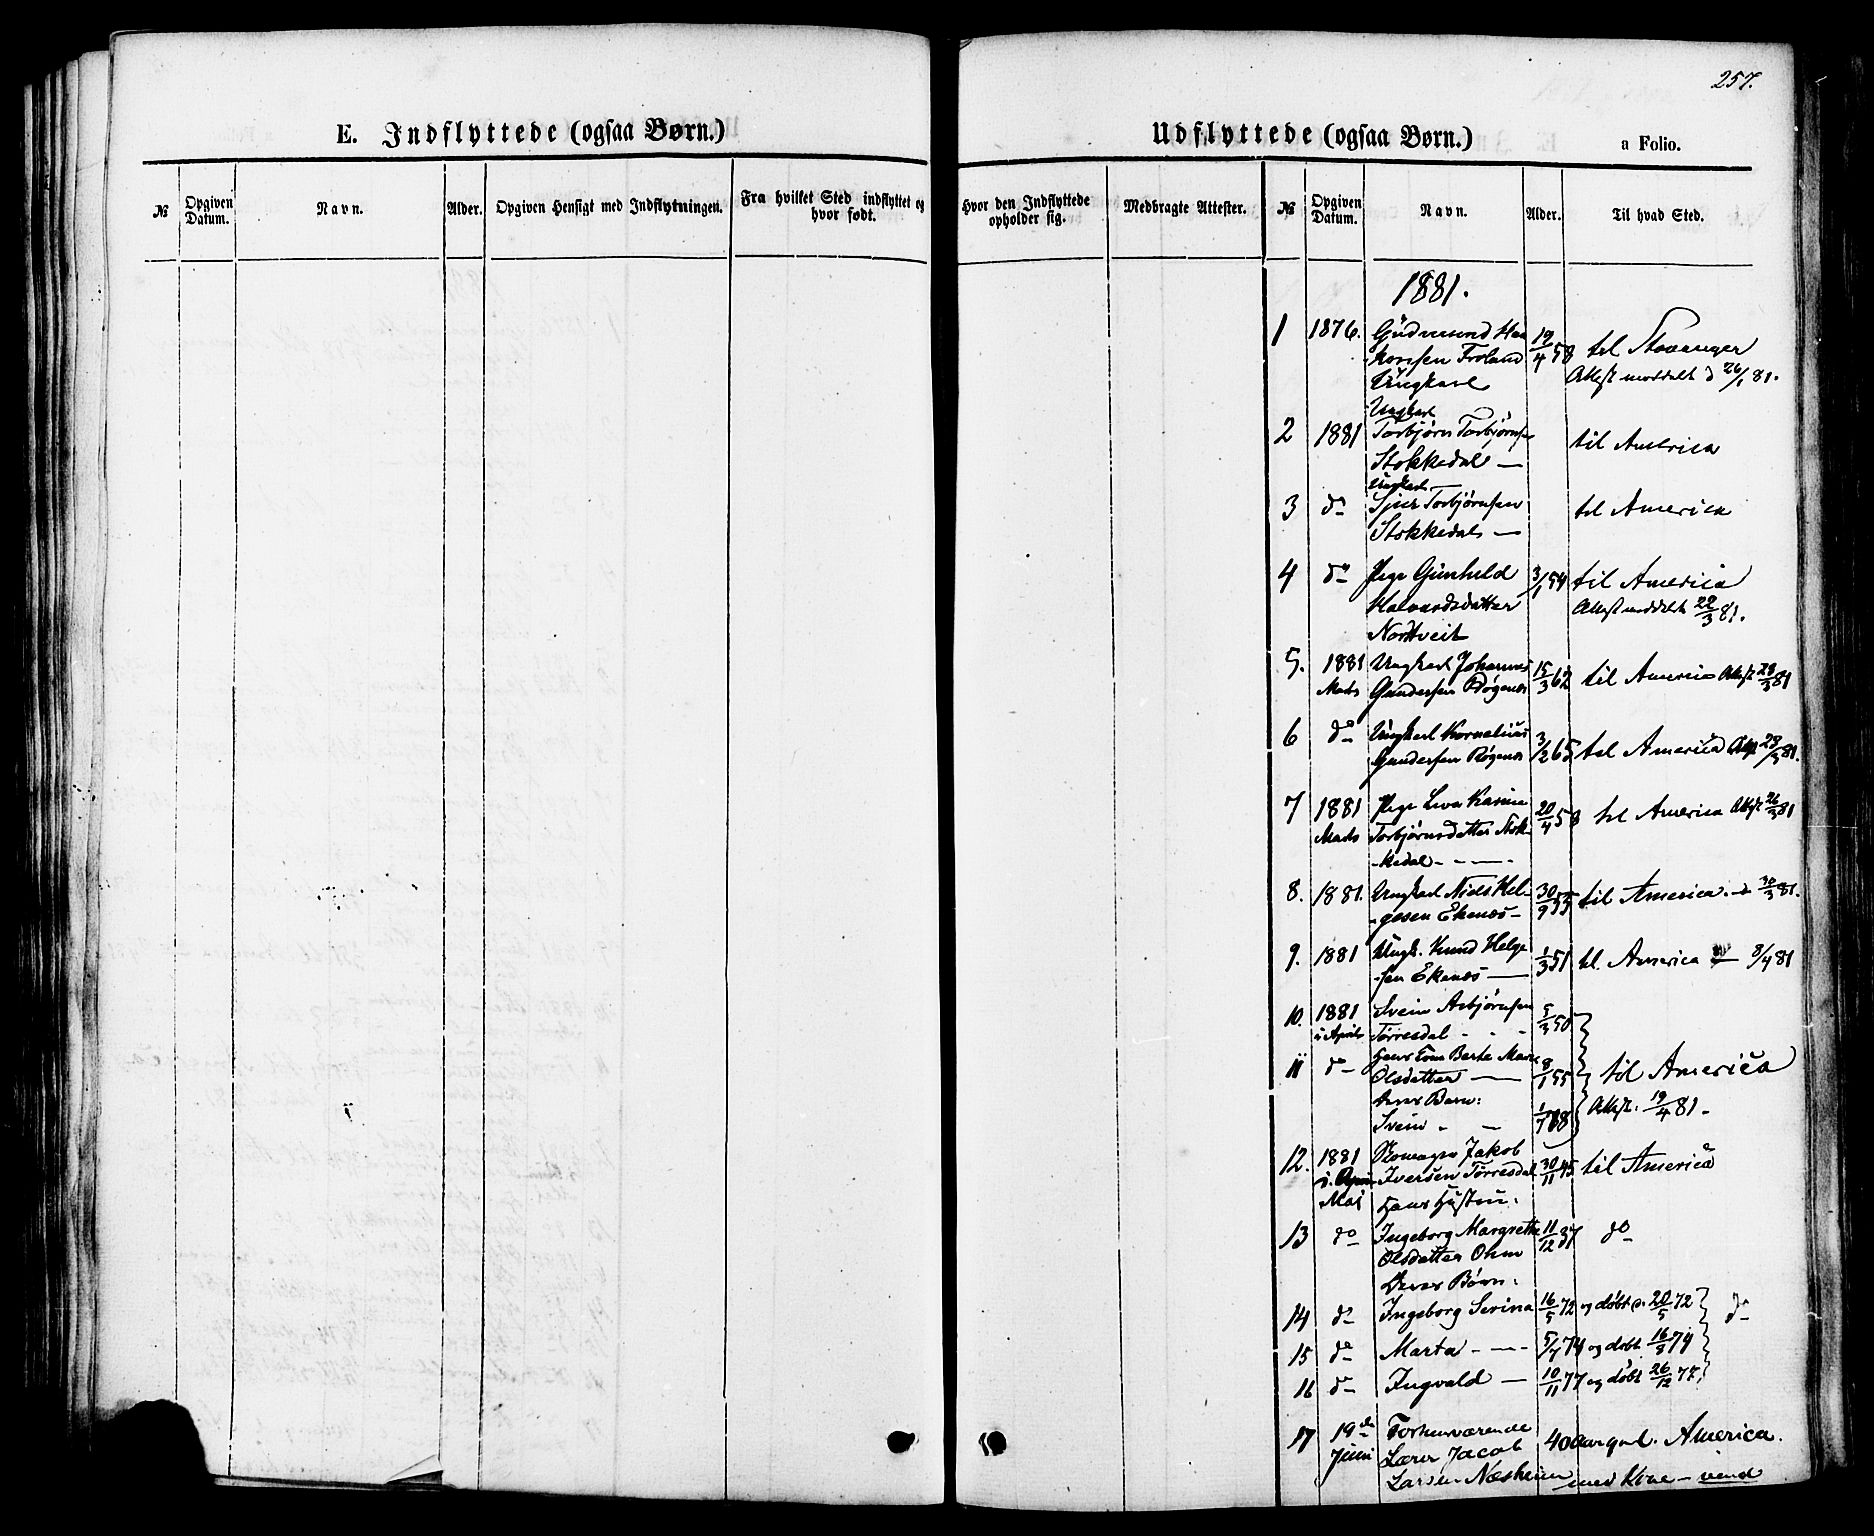 257.
E. Indflyttede (ogsaa Børn.)
Udflyttede (ogsaa Børn.)
a Folio.
№ Opgiven Datum. Navn. Alder. Opgiven Hensigt med Indflytningen. Fra hvilket Sted indflyttet og hvor født.
Hvor den Indflyttede opholder sig. Medbragte Attester. № Opgiven Datum. Navn. Alder. Til hvad Sted.
1881.
1 1876. Gudmund Haa 19/4 58 til Stavanger
konsen Froland Attest meddelt d 26/1 81.
Ungkarl
Ungkarl
2 1881 Torbjørn Torbjørnsen til America
Stokkedal —
Ungkarl
3 do Sjur Torbjørnsen til America
Stokkedal —
4 do Pige Gunhild 3/1 54 til America
Halvardsdatter Attest meddelt 22/3 81.
Nordtveit
5. 1881 Ungkarl Johannes 15/3 62 til America Attest 28/3 81
Marts Gundersen Røgenæs
6 do Ungkarl Kornelius 3/2 65 til America Att. 28/3 81.
Gundersen Røgenæs
7 1881 Pige Lava Karine 20/4 58 til America Attest 26/3 81
Marts Torbjørnsdatter Stok-
-kedal - - —
8. 1881. Ungkarl Niels Hel- 30/9 53 til America. — 30/3 81.
-gesen Ekenæs —
9. 1881 Ungk. Knud Helge 1/3 51 til America — 8/4 81
-sen Ekenæs —
10. 1881 Svein Asbjørnsen 5/3 50
i April Törresdal - - -
11 do Hans Kone Berte Marie 8/1 55 til America
Olsdatter — Attest. 19/4 81.
deres Barn:
Svein - -
12. 1881 Skomager Jakob 30/11 45 til America
i April Iversen Törresdal
Mai Hans Hustru:
13 do Ingeborg Margrethe 11/12 37 do
Olsdatter Ohm
Deres Børn:
14 do Ingeborg Serina 16/5 72 og døbt d. 20/5 72 do
15 do Marta - — - 5/4 74 og døbt 16/5 74
16 do Ingvald — 10/11 77 og døbt 26/12 77
17 19de Forhenværende 40 Aar gml. America.
Juni Lærer Jacob
Larsen Næsheim med Kone — vend